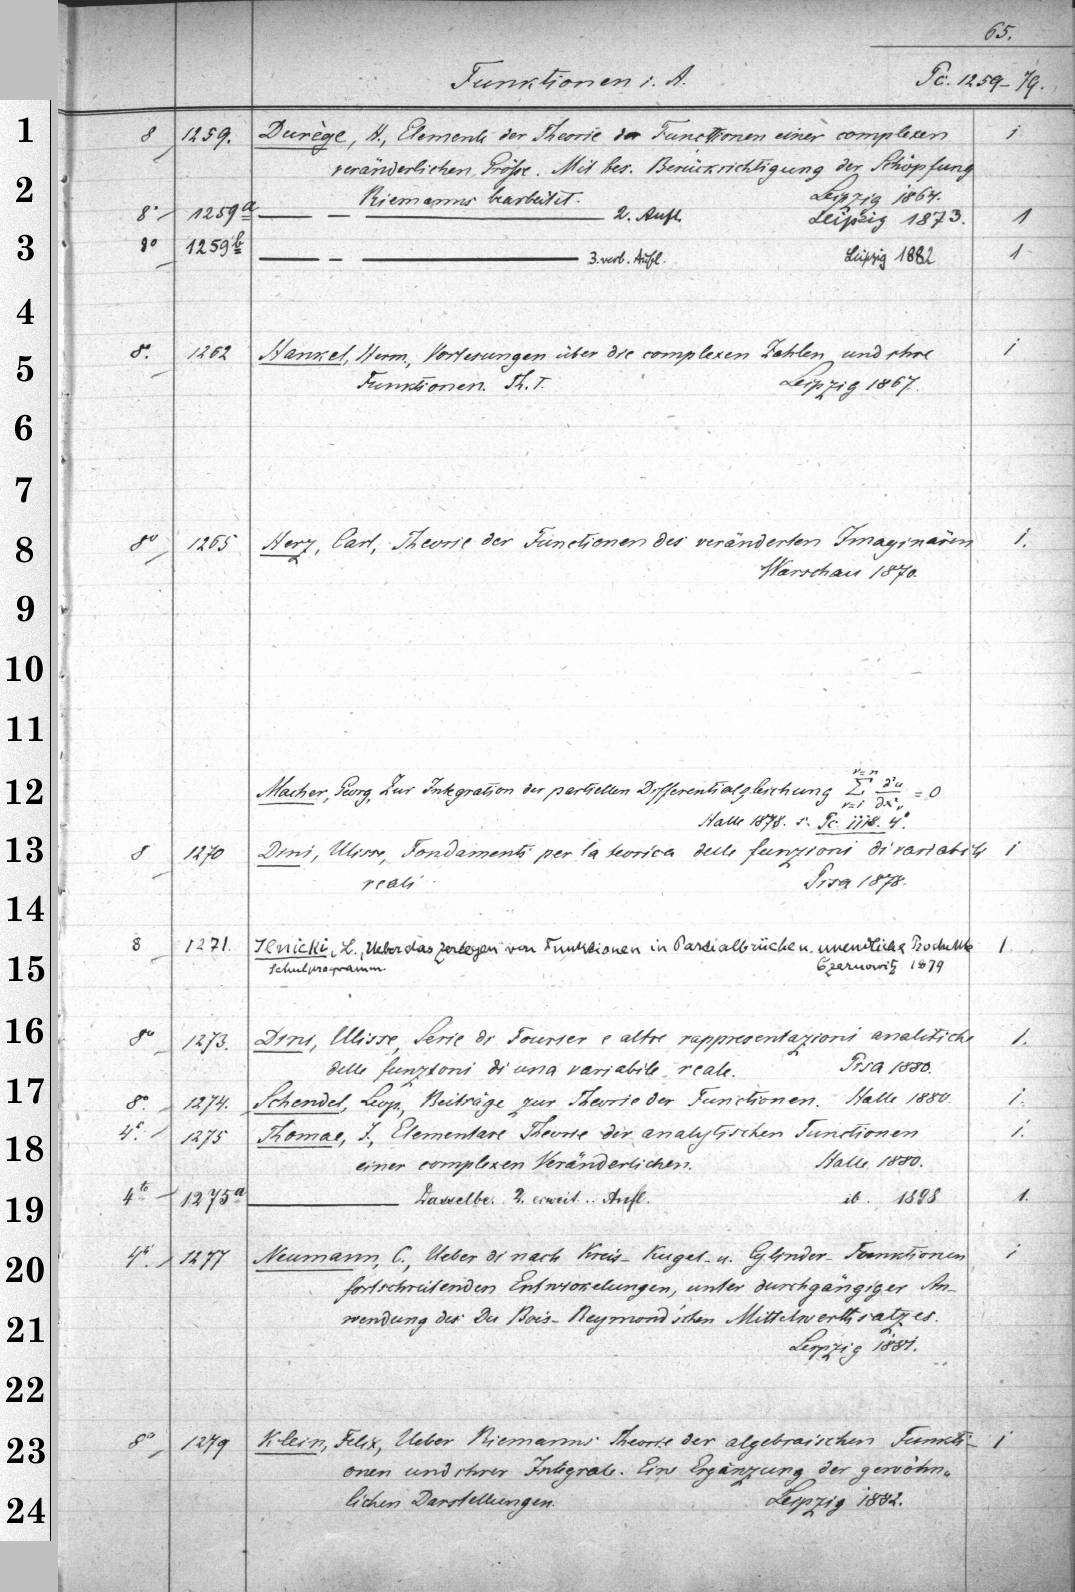 65.
Funktionen i. A. Pc. 1259–79.
1 8 1259. Durège, H., Elemente der Theorie der Functionen einer complexen 1
veränderlichen Grösse. Mit bes. Berücksichtigung der Schöpfung
2 Riemanns bearbeitet. Leipzig 1864.
8° 1259a — — — 2. Aufl. Leipzig 1873. 1
3 8° 1259b — — — 3. verb. Aufl. Leipzig 1882 1
4
5 8° 1262 Hankel, Herm., Vorlesungen über die complexen Zahlen und ihre 1
Funktionen. Th. I. Leipzig 1867.
6
7
8 8° 1265 Herz, Carl, Theorie der Functionen des veränderten Imaginären 1.
Warschau 1870.
9
10
11
12 Macher, Georg, Zur Integration der partiellen Differentialgleichung ν=n Σ ν=1 ∂²u/∂x²ν = 0
Halle 1878. s. Pc. 1118. 4°.
13 8 1270 Dini, Ulisse, Fondamenti per la teorica delle funzioni di variabili 1
reali Pisa 1878.
14
8 1271. Ilnicki, L., Ueber das Zerlegen von Funktionen in Partialbrüche u. unendliche Produkte 1
15 Schulprogramm. Czernowitz 1879
16 8° 1273. Dini, Ulisse, Serie di Fourier e altre rappresentazioni analitiche 1.
delle funzioni di una variabile reale. Pisa 1880.
17 8° 1274. Schendel, Leop., Beiträge zur Theorie der Functionen. Halle 1880. 1.
4° 1275 Thomae, J., Elementare Theorie der analytischen Functionen 1.
18 einer complexen Veränderlichen. Halle 1880.
19 4to 1275a — Dasselbe. 2. erweit. Aufl. ib. 1898 1.
20 4° 1277 Neumann, C., Ueber di nach Kreis- Kugel- u. Cylinder- Funktionen 1
fortschreitenden Entwickelungen, unter durchgängiger An-
21 wendung des Du Bois-Reymond'schen Mittelwerthsatzes.
Leipzig 1881.
22
23 8° 1279 Klein, Felix, Ueber Riemanns Theorie der algebraischen Funkti- 1
onen und ihrer Integrale. Eine Ergänzung der gewöhn-
24 lichen Darstellungen. Leipzig 1882.